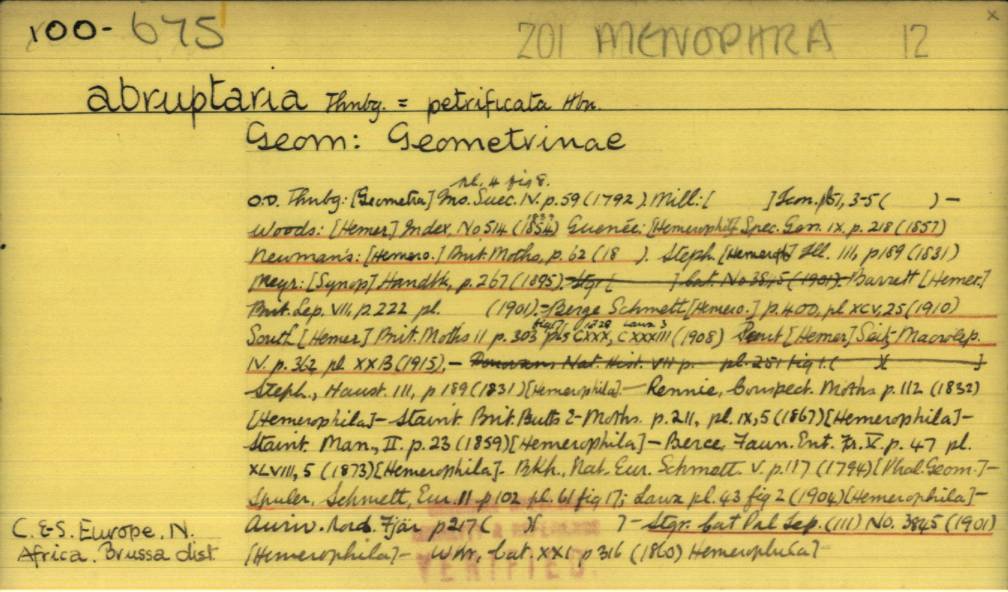 100-675 201 MENOPHRA 12
abruptaria Thnbg. = petrificata Hbn.
Geom: Geometrinae
pl. 4 fig 8.
O.D. Thnbg: [Geometra] Ins. Suec. IV. p. 59 (1792). Mill: [ ] 151, 3-5 ( ) —
1839
Woods: [Hemer] Index, No 514 (1854) Guenée: [Hemerophil] Spec. Gen. IX, p. 218 (1857)
Newman's: [Hemero.] Brit. Moths, p. 62 (18 ). Steph [Hemeroph] Ill. III, p 189 (1831)
Meyr: [Synop] Handbk, p. 267 (1895). Stgr [ ] Cat. No 3845 (1901). Barrett [Hemer]
Brit. Lep. VII, p. 222 pl. (1901). = Berge Schmett [Hemero.] p. 400, pl XCV, 25 (1910)
Larva 3
South [Hemer] Brit. Moths II p. 303 pls CXXX, CXXXIII (1908) Prout [Hemer] Seitz Macrolep.
IV. p. 362 pl XXB (1915), — Nat. Hist. VII p. pl. 251 fig 1. ( )( )
Steph., Haust. III, p 189 (1831) [Hemerophila] — Rennie, Conspect. Moths p. 112 (1832)
[Hemerophila] — Staint. Brit. Butts & Moths. p. 211, pl. IX, 5 (1867) [Hemerophila] —
Staint. Man., II. p. 23 (1859) [Hemerophila] — Berce Faun. Ent. Fr. V. p. 47 pl.
XLVIII, 5 (1873) [Hemerophila]. Bkh, Nat. Eur. Schmett. V. p. 117 (1794) [Phal. Geom.] —
Spuler, Schmett. Eur. II p 102 pl. 61 fig 17; Larva pl. 43 fig 2 (1904) [Hemerophila] —
C. & S. Europe. N. Auriv. Nord. Fjär p 217 ( )( ) — Stgr. Cat Pal Lep. (III) No. 3845 (1901)
Africa. Brussa dist [Hemerophila] — Wkr. Cat. XXI p 316 (1860) Hemerophila] —
VERIFIED.